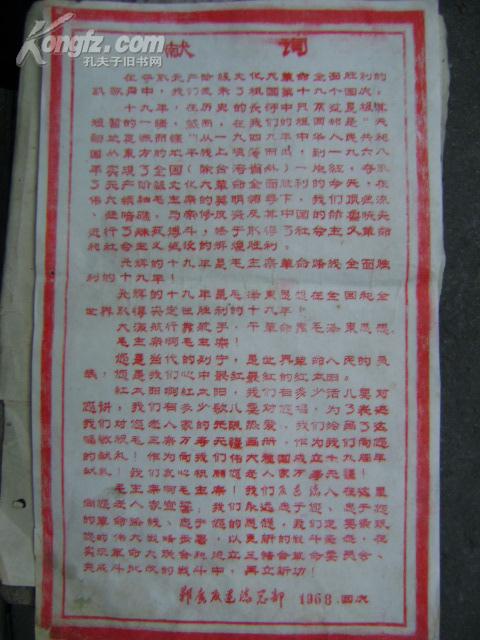 Kongfz.com
孔夫子旧书网
献 词
在夺取无产阶级文化大革命全面胜利的
凯歌声中，我们迎来了祖国第十九个国庆。
十九年，在历史的长河中只不过是极其
短暂的一瞬，然而，在我们的祖国却是“天
翻地复慨而慷”从一九四九年中华人民共和
国从东方的地平线上喷薄而出，到一九六八
年实现了全国（除台湾省外）一片红，夺取
了无产阶级文化大革命全面胜利的今天，在
伟大领袖毛主席的英明领导下，我们顶逆流
、迎暗礁，与帝修反及其中国的
进行了殊死搏斗，终于取得了社会主义革命
和社会主义建设的辉煌胜利。
光辉的十九年是毛主席革命路线全面胜
利的十九年！
光辉的十九年是毛泽东思想在全国和全
世界取得决定性胜利的十九年！
大海航行靠舵手，干革命靠毛泽东思想。
毛主席啊毛主席！
您是当代的列宁，是世界革命人民的灵
魂，您是我们心中最红最红的红太阳。
红太阳啊红太阳，我们有多少话儿要对
您讲，我们有多少歌儿要对您唱，为了表达
我们对您老人家的无限热爱，我们绘画了这
幅敬祝毛主席万寿无疆画册，作为我们向您
的献礼！作为我们伟大祖国成立十九周年
献礼！我们衷心祝愿您老人家万寿无疆！
毛主席啊毛主席！我们 人在这里
向您老人家宣誓：我们永远忠于您、忠于您
的革命路线、忠于您的思想，我们定要紧跟
您的伟大战略步署，以更新的战斗姿态，在
实现革命大联合和建立三结合革命委员会、
完成斗批改的战斗中，再立新功！
总部 1968.国庆